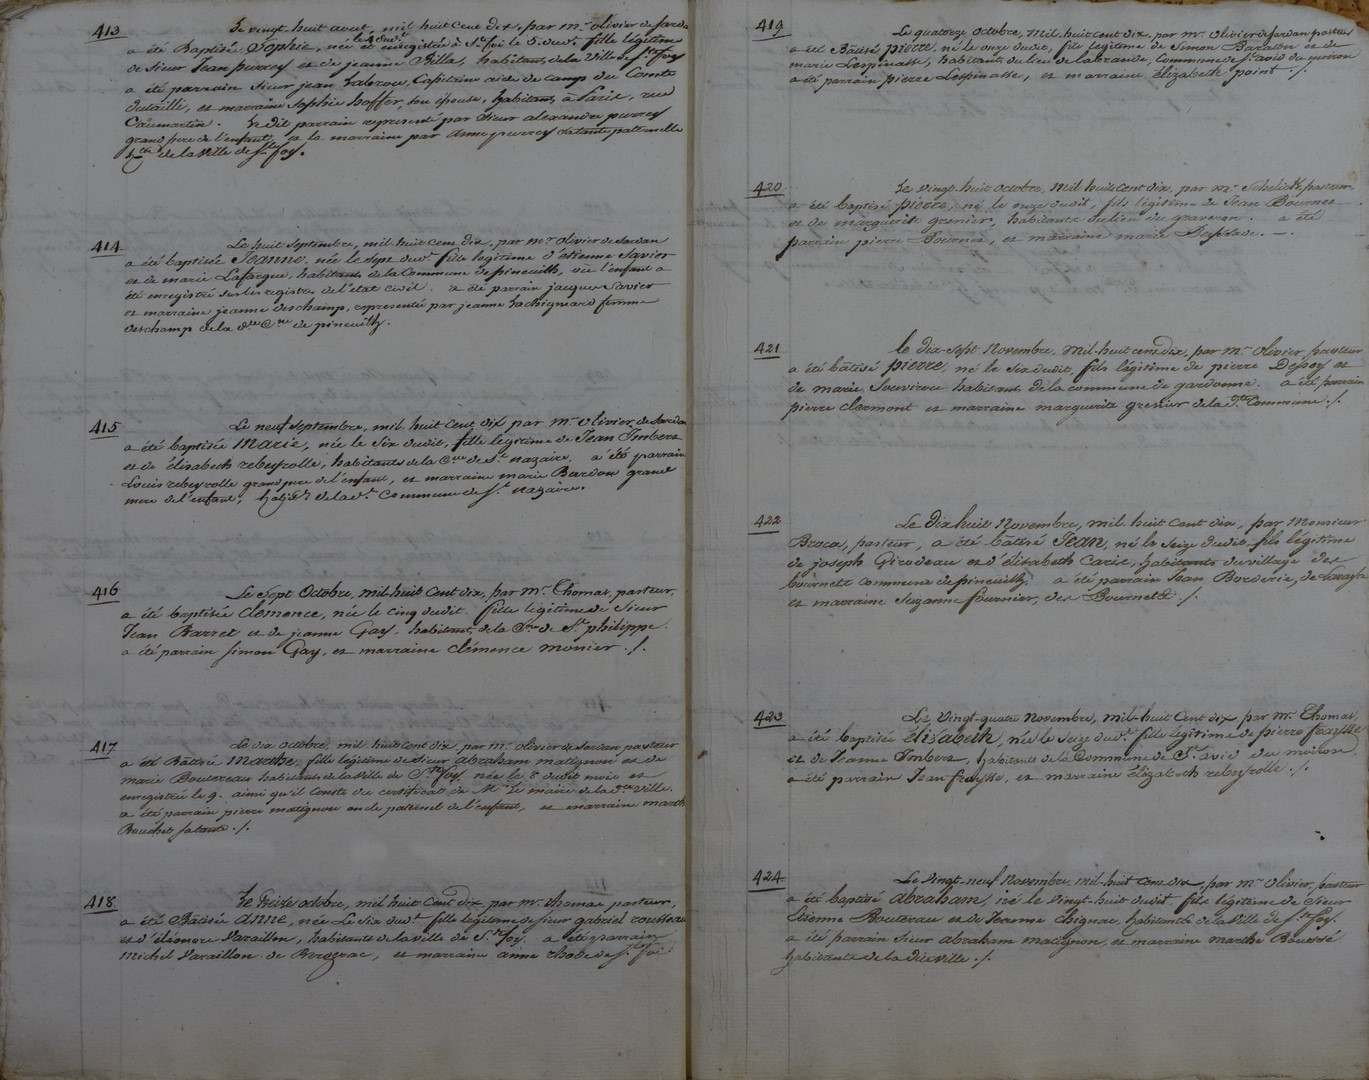 413
Le vingt huit aout, mil huit cent dix, par mr. olivier de Sardan
a été Baptisée Sophie, née le 4 dudt et enregistrée à Ste foi le 5. dudt. fille légitime
de Sieur Jean purrey et de jeanne Billa, habitants de la Ville de Ste foy
a été parrain Sieur jean Labrou, Capitaine aide de camp du Comte
dutaillis, et marraine Sophie hoffer, son épouse, habitants à Paris, rue
Caumartin. Le dit parrain représenté par Sieur alexandre purrey
grand pere de l'enfant, et la marraine par anne purrey sa tante paternelle
de la Ville de Ste foy.
414
Le huit Septembre, mil huit cent dix, par mr. olivier de Sardan
a été baptisée Jeanne, née le Sept dudt. fille légitime d'étienne Savier
et de marie Lafargue, habitants de la Commune de pineuilh, vie l'enfant a
été enregistré sur les registres de l'état civil. a été parrain jacques Savier
et marraine jeanne deschamp, représentée par jeanne Lachignard femme
deschamp de la dte Cne de pineuilh.
415
Le neuf Septembre, mil huit Cent dix par mr. olivier de Sardan
a été baptisée Marie, née le Six dudit, fille légitime de Jean Imbert
et de élisabeth rebeyrolle, habitants de la Cne de St. nazaire. a été parrain
Louis rebeyrolle grand pere de l'enfant, et marraine marie Bardon grand
mere de l'enfant, de la dt. Commune de St. nazaire.
416
Le Sept Octobre, mil huit Cent dix, par mr. Thomas, pasteur,
a été baptisée Clemence, née le cinq dudit. fille légitime de Sieur
Jean Barret et de jeanne Gay, habitants de la Cne de St. philippe.
a été parrain Simon Gay, et marraine clémence monier ./.
417
Le dix octobre, mil huit cent dix, par mr. olivier de Sardan pasteur
a été Bâtisé Marthe, fille légitime de Sieur abraham matignon et de
marie Boutereau habitants de la Ville de Ste foy née le 8 dudit mois et
enregistrée le 9. ainsi qu'il Conste du certificat de Mr le maire de la dte Ville.
a été parrain pierre matignon oncle paternel de l'enfant, et marraine marthe
Bouchet sa tante ./.
418
Le treize octobre, mil huit Cent dix, par mr. thomas pasteur,
a été Bâtisée anne, née Le Six dudt. fille légitime de Sieur gabriel rousseau
et d'éléonore Varaillon, habitants de la Ville de Ste foy. a été parrain
Michel Varaillon de Bergerac, et marraine anne rhode de Ste foi
419
Le quatorze octobre, mil huit cent dix, par mr. olivier de Sardan pasteur
a été Bâtisé pierre, né le onze dudit, fils légitime de Simon Baraton et de
marie Lespinasse, habitants du lieu de Labrande, commune de St. avid du moiron
a été parrain pierre Lespinasse, et marraine Élizabeth point ./.
420
Le vingt-huit octobre, mil huit cent dix, par mr. Schelick, pasteur
a été baptisé pierre, né le onze dudit, fils légitime de Jean Bournes
et de marguerite grenier, habitants du lieu du graveron. a été
parrain pierre Bournes, et marraine marie
421
le dix-sept Novembre, mil-huit cent dix, par mr. olivier pasteur
a été bâtisé pierre, né le Six dudit, fils légitime de pierre Dépoy et
de marie Souvirou habitants de la commune de gardonne. a été parrain
pierre clermont et marraine marguerite grenier de la dte Commune ./.
422
Le Dix huit Novembre, mil huit cent dix, par Monsieur
Broca, pasteur, a été bâtisé Jean, né le Seize dudit, fils légitime
de joseph Girodeau et d'élisabeth Carie, habitants du village des
bournets commune de pineuilh. a été parrain Jean Borderie, de
et marraine Suzanne fournier, des Bournets ./.
423
Le Vingt-quatre Novembre, mil-huit Cent dix par mr. Thomas
a été baptisée élisabeth, née le Seize dudt. fille légitime de pierre fraysse
et de Jeanne Imbert, habitants de la Commune de St. avid du moiron
a été parrain Jean fraysse, et marraine Élizabeth rebeyrolle ./.
424
Le Vingt-neuf Novembre, mil-huit Cent dix, par mr. olivier, pasteur
a été baptisé abraham, né le Vingt-huit dudit fils légitime de Sieur
Etienne Boutereau et de Jeanne Chignac, habitants de la Ville de Ste foy.
a été parrain Sieur abraham matignon, et marraine marthe Bourssé
habitants de la dite Ville ./.